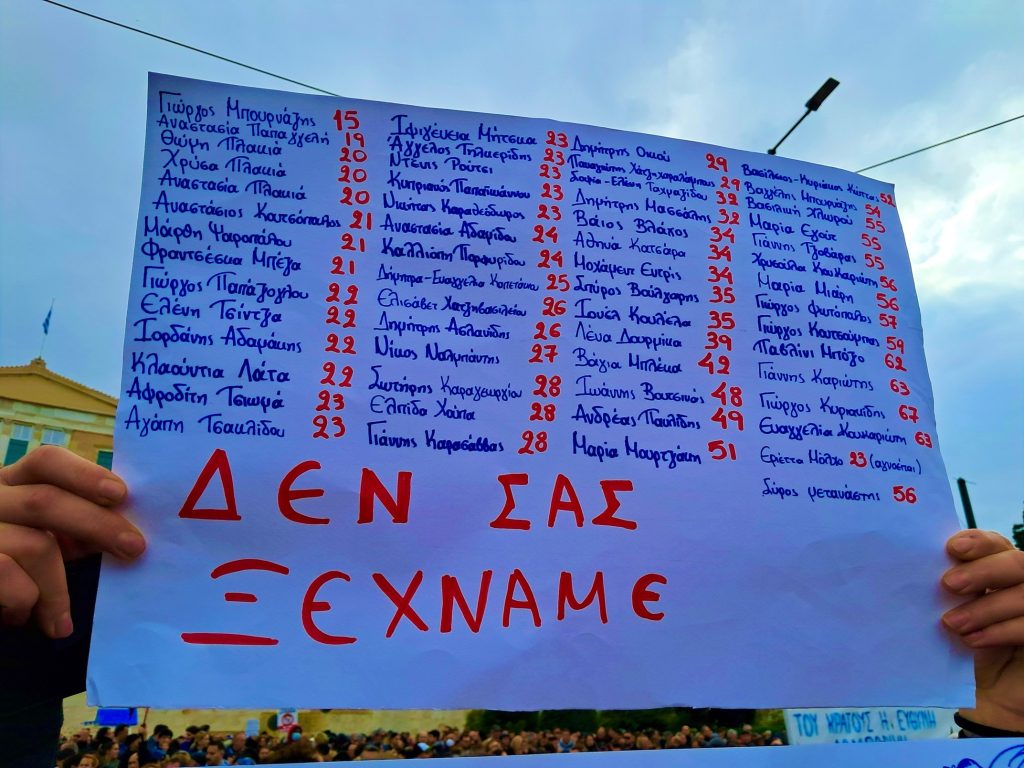 Γιώργος Μπουρνάζης 15
Αναστασία Παπαγγελή 19
Θώμη Πλακιά 20
Χρύσα Πλακιά 20
Αναστασία Πλακιά 20
Αναστάσιος Κουτσόπουλος 21
Μάρθη Ψαροπούλου 21
Φραντσέσκα Μπέζα 21
Γιώργος Παπάζογλου 22
Ελένη Τσίντζα 22
Ιορδάνης Αδαμάκης 22
Κλαούντια Λάτα 22
Αφροδίτη Τσιωμά 23
Αγάπη Τσακλίδου 23
Ιφιγένεια Μήτσκα 23
Άγγελος Τηλκερίδης 23
Ντένις Ρούτσι 23
Κυπριανός Παπαϊωάννου 23
Νικήτας Καραθεόδωρος 23
Αναστασία Αδαμίδου 24
Καλλιόπη Πορφυρίδου 24
Δήμητρα-Ευαγγελία Καπετάνιου 25
Ελισάβετ Χατζηβασιλείου 26
Δημήτρης Ασλανίδης 26
Νίκος Ναλμπάντης 27
Σωτήρης Καραγεωργίου 28
Ελπίδα Χούπα 28
Γιάννης Καρασάββας 28
Δημήτρης Οικού 29
Παναγιώτης Χατζηχαραλάμπους 29
Σοφία-Ελένη Ταχμαζίδου 32
Δημήτρης Μασσαλής 32
Βάιος Βλάχος 34
Αθηνά Κατσάρα 34
Μοχάμεντ Εντρίς 34
Σπύρος Βούλγαρης 35
Ιουέλ Κουλέλα 35
Λένα Δουρμίκα 39
Βάγια Μπλέκα 42
Ιωάννης Βουτσινάς 48
Ανδρέας Παυλίδης 49
Μαρία Μουρτζάκη 51
Βασίλειος-Κυριάκος Κώττας 52
Βαγγέλης Μπουρνάζης 54
Βασιλική Χλωρού 55
Μαρία Εγούτ 55
Γιάννης Τζοβάρας 55
Χρυσούλα Κουκαριώτη 56
Μαρία Μιάρη 56
Γιώργος Φωτόπουλος 57
Γιώργος Κουτσούμπας 59
Παβλίνι Μπόζο 62
Γιάννης Καριώτης 63
Γιώργος Κυριακίδης 67
Ευαγγελία Κουκαριώτη 63
Εριέττα Μόλχο 23 (αγνοείται)
Σύρος μετανάστης 56
ΔΕΝ ΣΑΣ
ΞΕΧΝΑΜΕ
ΤΟΥ ΚΡΑΤΟΥΣ Η ΕΥΘΥΝΗ